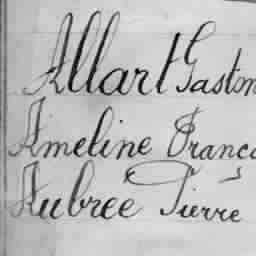 Allart Gaston
Ameline Franc
Aubree Pierre